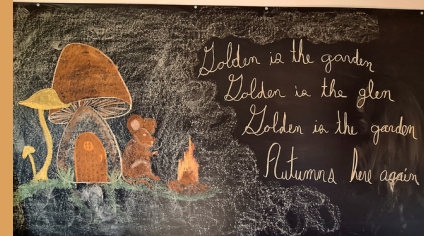 Golden is the garden
Golden is the glen
Golden is the garden
Autumns here again